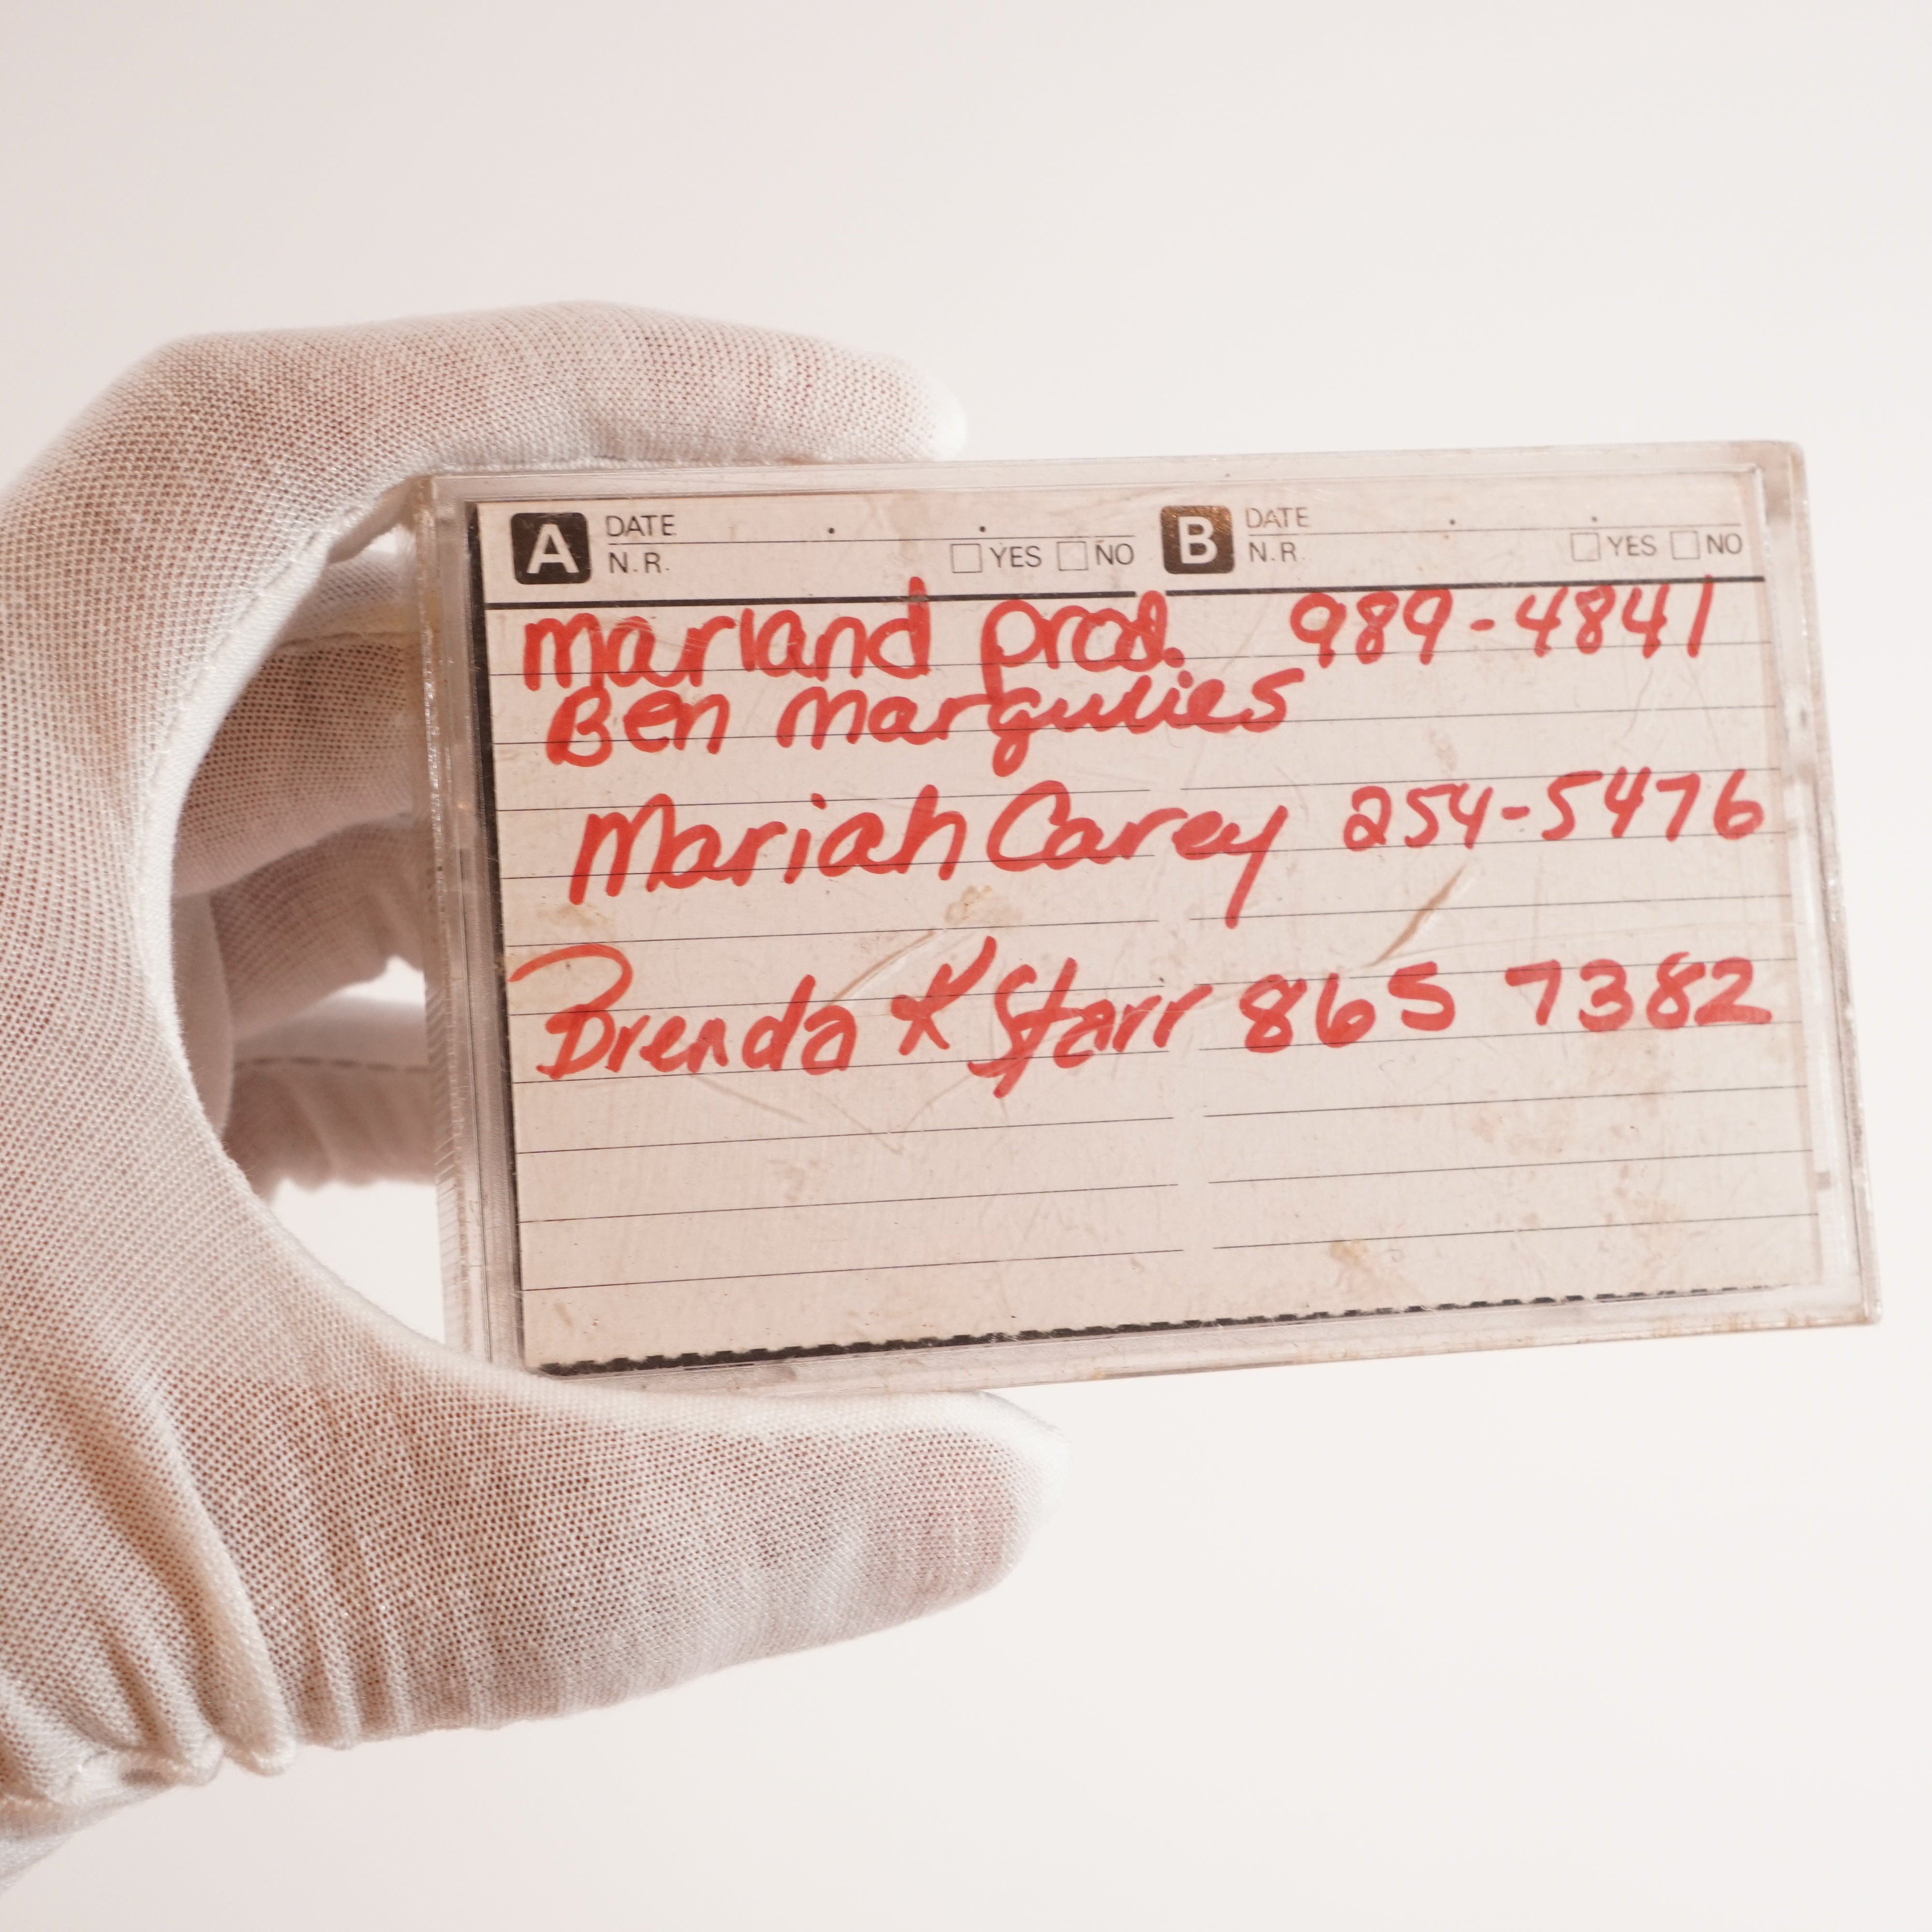 A DATE . . B DATE . .
N.R. YES NO N.R. YES NO
Marland prod. 989-4841
Ben Margulies
Mariah Carey 254-5476
Brenda K Starr 865 7382